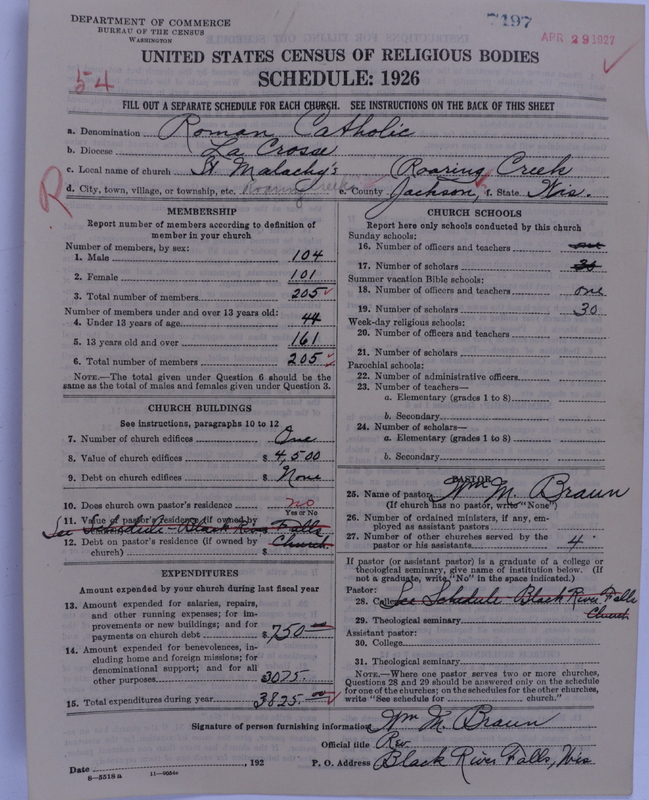 DEPARTMENT OF COMMERCE
BUREAU OF THE CENSUS
WASHINGTON
7197
APR 29 1927
UNITED STATES CENSUS OF RELIGIOUS BODIES
54
SCHEDULE: 1926
FILL OUT A SEPARATE SCHEDULE FOR EACH CHURCH. SEE INSTRUCTIONS ON THE BACK OF THIS SHEET
a. Denomination Roman Catholic
b. Diocese La Crosse
c. Local name of church St. Malachy's Roaring Creek
R
d. City, town, village, or township, etc. Roaring Creek e. County Jackson, f. State Wis.
MEMBERSHIP
Report number of members according to definition of
member in your church
Number of members, by sex:
1. Male 104
2. Female 101
3. Total number of members 205
Number of members under and over 13 years old:
4. Under 13 years of age 44
5. 13 years old and over 161
6. Total number of members 205
NOTE.—The total given under Question 6 should be the
same as the total of males and females given under Question 3.
CHURCH BUILDINGS
See instructions, paragraphs 10 to 12
7. Number of church edifices One
8. Value of church edifices $ 4,500
9. Debt on church edifices $ None
10. Does church own pastor's residence no
Yes or No
11. Value of pastor's residence (if owned by
See Schedule - Black River Falls
12. Debt on pastor's residence (if owned by Church
church) $
EXPENDITURES
Amount expended by your church during last fiscal year
13. Amount expended for salaries, repairs,
and other running expenses; for im-
provements or new buildings; and for
payments on church debt $ 750 00
14. Amount expended for benevolences, in-
cluding home and foreign missions; for
denominational support; and for all
other purposes 3075.
15. Total expenditures during year 3825. 00
CHURCH SCHOOLS
Report here only schools conducted by this church
Sunday schools:
16. Number of officers and teachers one
17. Number of scholars 30
Summer vacation Bible schools:
18. Number of officers and teachers one
19. Number of scholars 30
Week-day religious schools:
20. Number of officers and teachers
21. Number of scholars
Parochial schools:
22. Number of administrative officers
23. Number of teachers—
a. Elementary (grades 1 to 8)
b. Secondary
24. Number of scholars—
a. Elementary (grades 1 to 8)
b. Secondary
PASTOR
25. Name of pastor Wm M. Braun
(If church has no pastor, write "None")
26. Number of ordained ministers, if any, em-
ployed as assistant pastors
27. Number of other churches served by the
pastor or his assistants 4
If pastor (or assistant pastor) is a graduate of a college or
theological seminary, give name of institution below. (If
not a graduate, write "No" in the space indicated.)
Pastor:
28. College See Schedule - Black River Falls
Church
29. Theological seminary
Assistant pastor:
30. College
31. Theological seminary
NOTE.—Where one pastor serves two or more churches,
Questions 28 and 29 should be answered only on the schedule
for one of the churches; on the schedules for the other churches,
write "See schedule for church."
Signature of person furnishing information Wm M. Braun
Official title Rev.
Date , 192 P. O. Address Black River Falls, Wis
8-5518 a 11-9054c